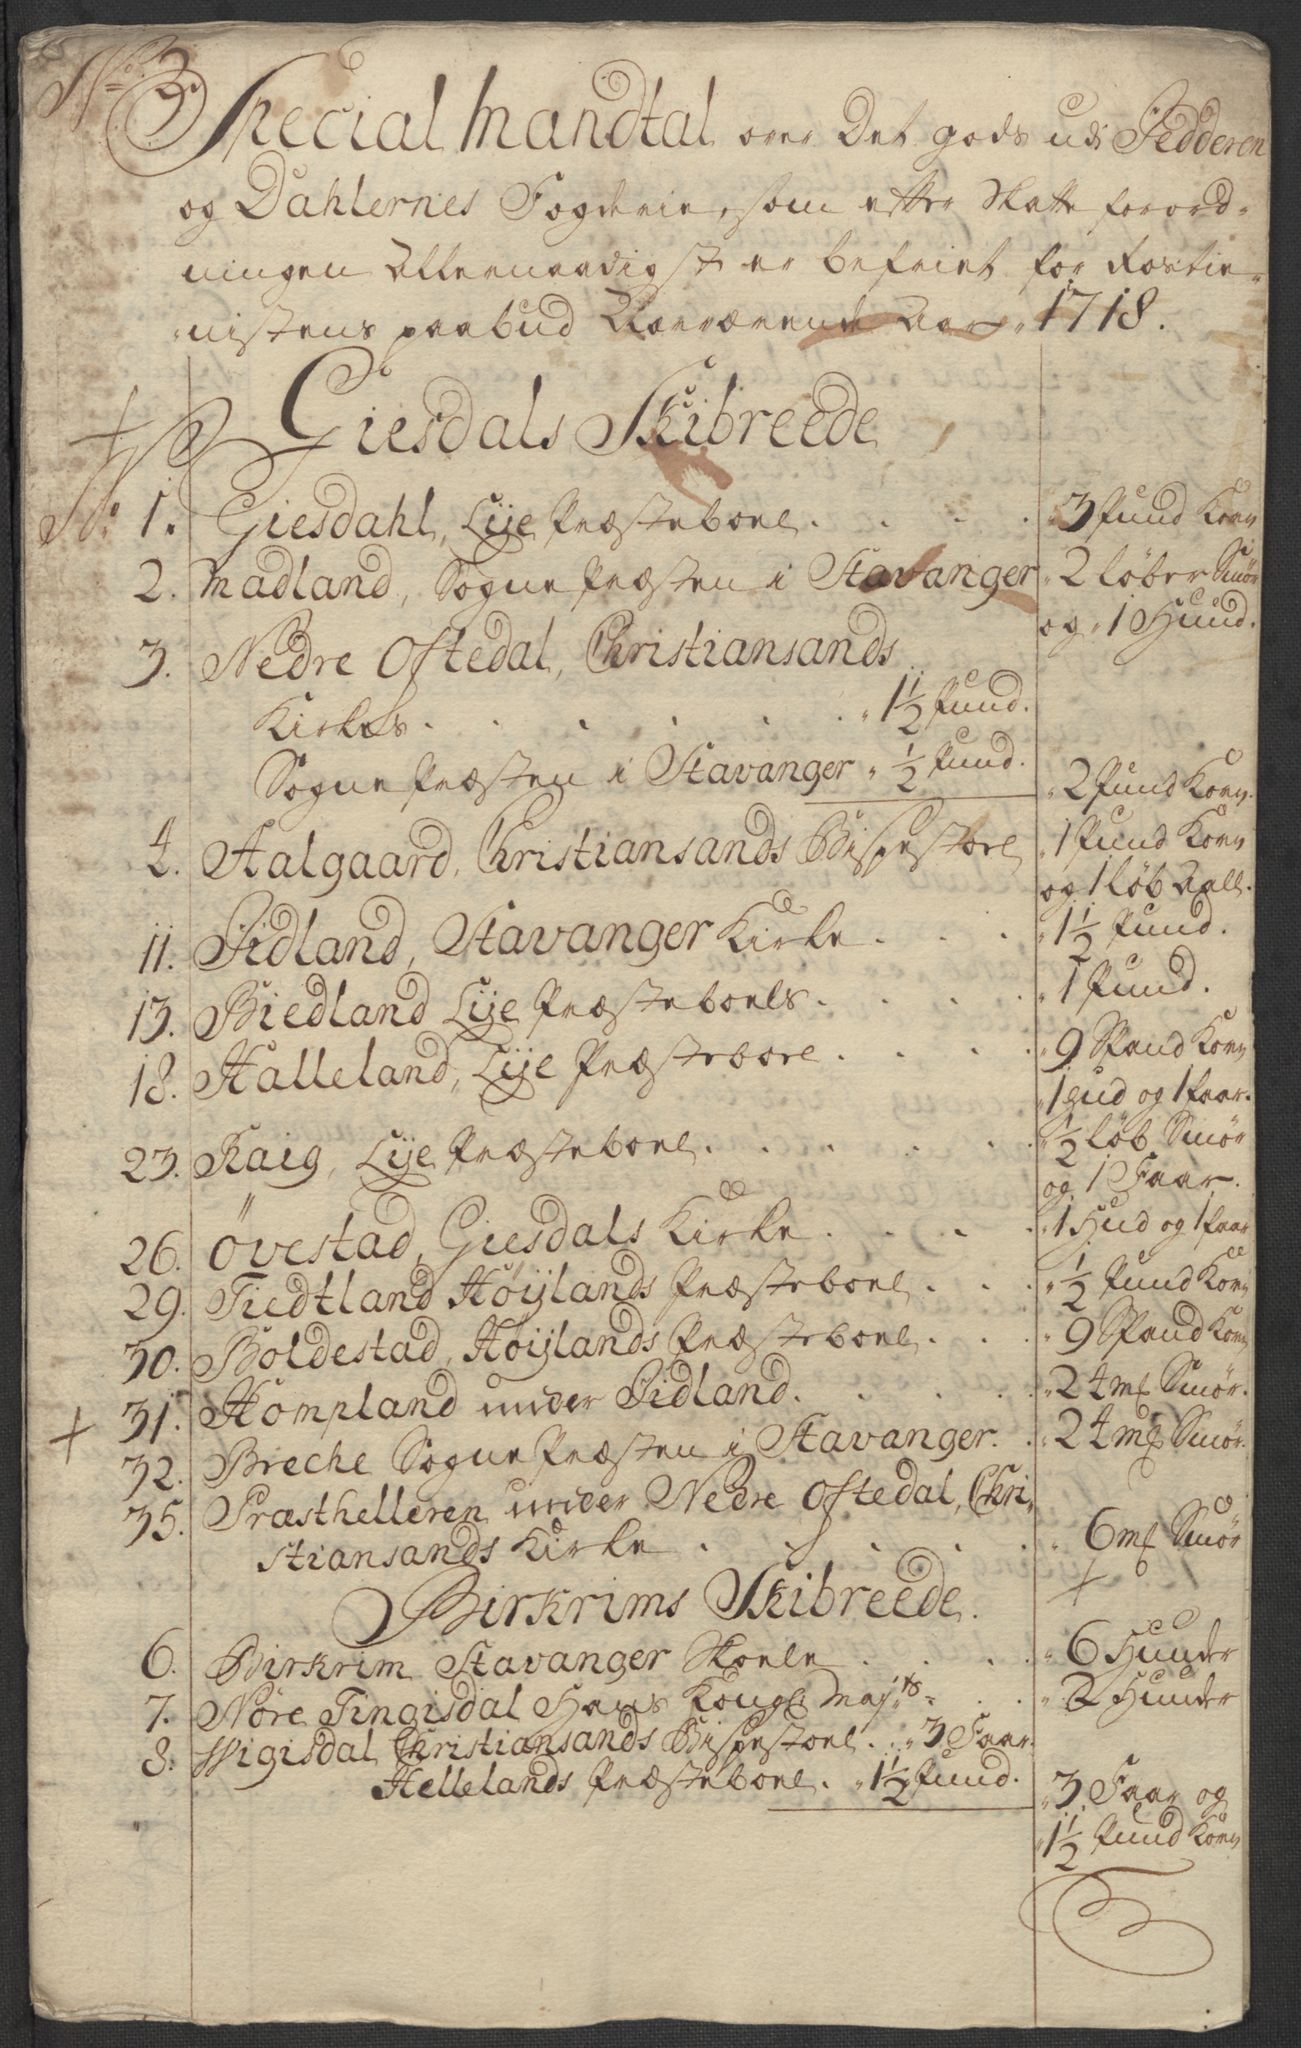 No. 3.
Special Mandtal over Det gods udi Jedderen
og Dahlernes Fogderie, som efter Skatte forord-
ningen Allernaadigst er befriet for Rostie-
nistens paabud Nærværende Aar 1718.
Giesdals Skibreede
No. 1. Giesdahl, Lije Præsteboel . . . . 3 Pund Korn
2. Madland, Sogne Præsten i Stavanger 2 løber Smør
og 1 Huud.
3. Nedre Oftedal, Christiansands
Kirkes . . . . . . 1½ Pund.
Sogne Præsten i Stavanger ½ Pund.
2 Pund Korn.
4. Aalgaard, Christiansands Bispestoel 1 Pund Korn
og 1 løb Salt.
11. Jidland, Stavanger Kirke . . . 1½ Pund.
13. Biedland Lije Præsteboels . . . 1 Pund.
18. Halleland, Lije Præsteboel . . . . 9 Spand Korn
1 Hud og 1 faar.
23. Kaig, Lije Præsteboel . . . . ½ løb Smør
og 1 Faar.
26. Övestad, Giesdals Kirke . . . . 1 Hud og 1 faar
29. Tiedtland Høijlands Præsteboel . . . ½ Pund Korn
30. Boldestad, Høijlands Præsteboel . . . 9 Spand Korn
31. Hompland under Jidland . . . . . 24 mk Smør.
32. Breche Sogne Præsten i Stavanger . . 24 mk Smør.
35. Præsthelleren under Nedre Oftedal, Chri-
stiansands Kirke . . . . . 6 mk Smør
Birkrims Skibreede.
6. Birkrim Stavanger Skoele . . . . 6 Huuder
7. Nøre Tingisdal Hans Kongl. Mayts . . . 2 Huuder
8. Wigisdal Christiansands Bispestoel . . 3 Faar.
Hellelands Præsteboel . 1½ Pund.
3 Faar og
1½ Pund Korn